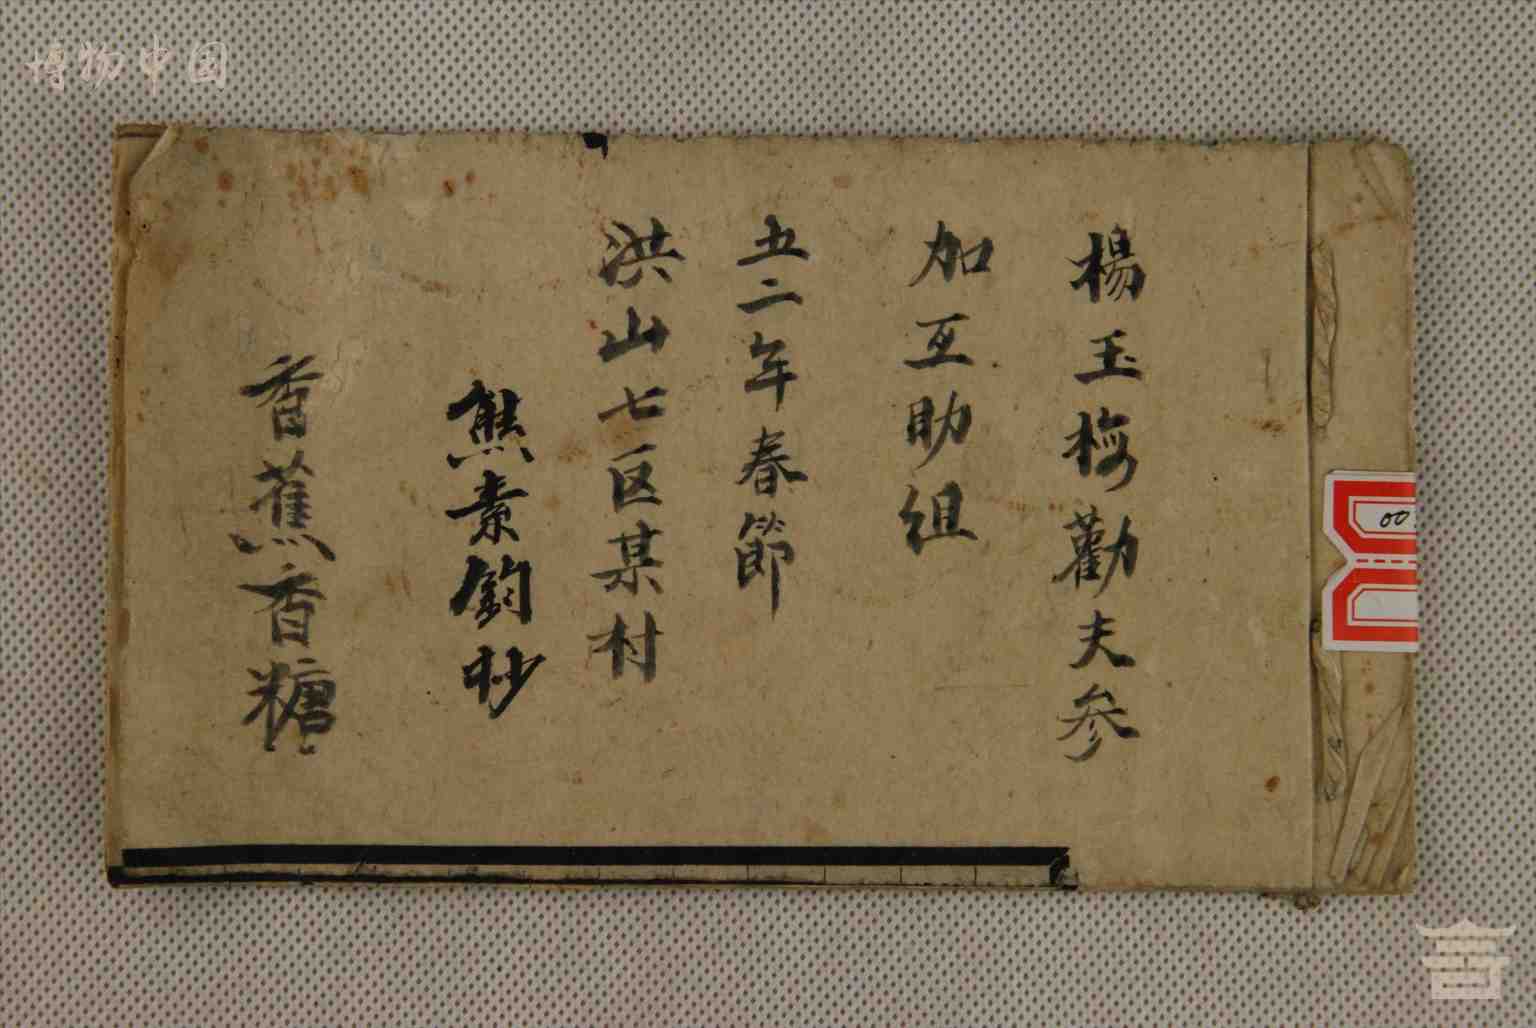 博物中国
楊玉梅勸夫参
加互助组
五二年春節
洪山七区某村
熊素鈞抄
香蕉香糖
00